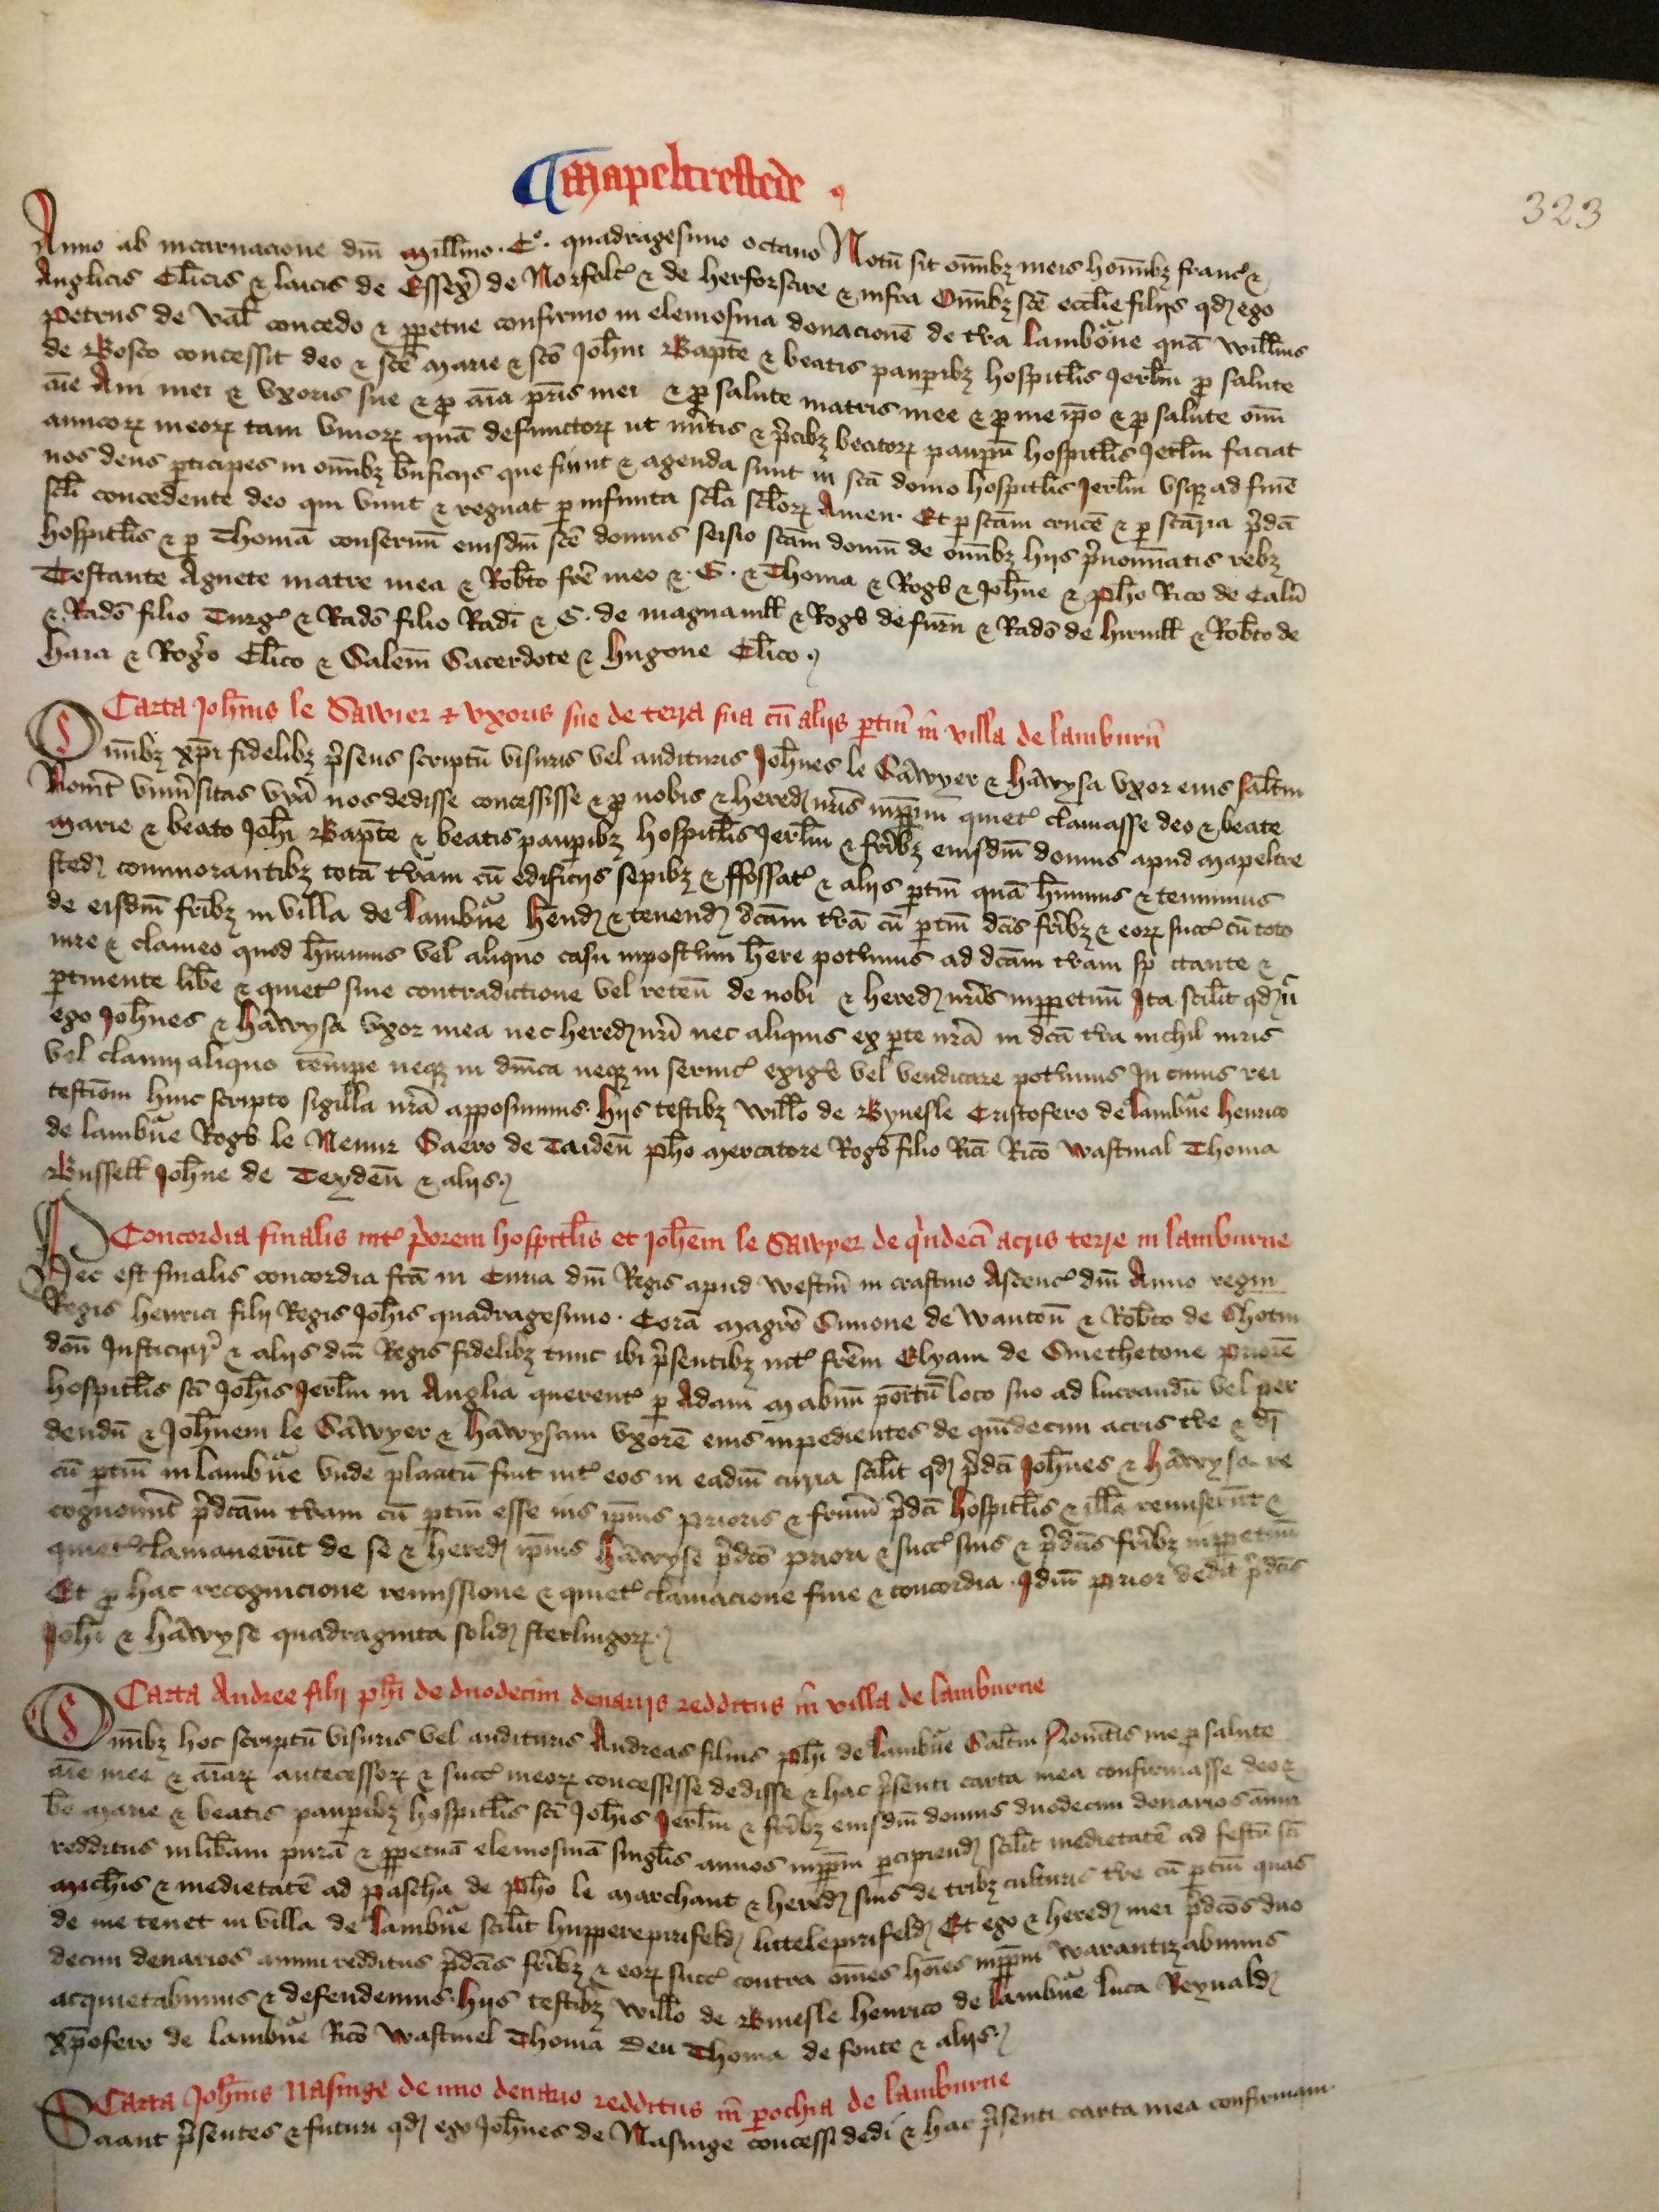 ¶ Mapeltrestede
323
Anno ab incarnacione dm̄ Mill̄mo. Cº. quadragesimo octauo Notū sit om̄ibꝫ meis hom̄ibꝫ franc̉ ⁊
Anglicis Cl̄icis ⁊ laicis de Essex̉ de Norfolc̉ ⁊ de herforscire ⁊ infra Om̄ibꝫ sc̄e eccl̄ie filijs qd̄ ego
Petrus de Val̄ concedo ⁊ ꝑpetue confirmo in elemosina donacionē de t̉ra lambo͛ne quā Will̄mus
de Bosco concessit deo ⁊ sc̄e Marie ⁊ sc̄o Joh̄ni Bapt̄e ⁊ beatis pauꝑibꝫ hospital̄is Jerl̄m ꝓ salute
aīe Aui mei ⁊ Vxoris sue ⁊ ꝓ aīa pr̄is mei ⁊ ꝓ salute matris mee ⁊ ꝓ me ip̄o ⁊ ꝓ salute om̄
amicoꝝ meoꝝ tam viuoꝝ quā defunctoꝝ ut m̄itis ⁊ p̉cibꝫ beatoꝝ pauꝑū hospital̄is Jerl̄m faciat
nos deus ꝑticipes in om̄ibꝫ bn̄ficijs que fiunt ⁊ agenda sunt in sc̄a domo hospital̄is Jerl̄m vsqꝫ ad finē
sc̄li concedente deo qui viuit ⁊ regnat ꝑ infinita sc̄la sc̄loꝝ Amen. Et ꝑ sc̄am crucē ⁊ ꝑ p̉dc̄i
hospital̄is ⁊ ꝑ Thomā conseruū eiusdm̄ sc̄e domus seisio sc̄am domū de om̄ibꝫ hijs p̉nominatis rebꝫ
Testante Agnete matre mea ⁊ Rob̄to fr̄e meo ⁊ .G. ⁊ Thoma ⁊ Rog̉o ⁊ Joh̄ne ⁊ Ph̄o Rico de Calū
⁊ Rad̄o filio Turg̉ ⁊ Rad̄o filio Rad̄i ⁊ G. de magnauill̄ ⁊ Rog̉o de ⁊ Rad̄o de ⁊ Rob̄to de
⁊ Rog̉o Cl̄ico ⁊ Salem̄ Sacerdote ⁊ Hugone Cl̄ico
Carta Joh̄nis le Sawier ⁊ vxoris sue de terra sua cū alijs ꝑtin̄ in villa de lamburn̄
Om̄ibꝫ xp̄i fidelibꝫ p̉sens scriptū visuris vel audituris Joh̄nes le Sawyer ⁊ Hawysa vxor eius salt̄m
Noủit vniủsitas vr̄a nos dedisse concessisse ⁊ ꝓ nobis ⁊ hered̄ nr̄is inꝑpm̄ quiet̉ clamasse deo ⁊ beate
Marie ⁊ beato Joh̄i Bapt̄e ⁊ beatis pauꝑibꝫ hospital̄is Jerl̄m ⁊ fr̄ibꝫ eiusdm̄ domus apud Mapeltre
sted̄ commorantibꝫ totā t̉ram cū edificijs sepibꝫ ⁊ ffossat̉ ⁊ alijs ꝑtin̄ quā h̄uimus ⁊ tenuimus
de eisdm̄ fr̄ibꝫ in villa de lambu͛ne h̄end̄ ⁊ tenend̄ dc̄am t̉rā cū ꝑtin̄ dc̄is fr̄ibꝫ ⁊ eoꝝ succ̉ cū toto
iure ⁊ clameo quod h̄uimus vel aliquo casu inpost̉um h̄ere pot̉imus ad dc̄am t̉ram sp ctante ⁊
ꝑtinente lib̄e ⁊ quiet̉ sine contradictione vel reten̄ de nobi ⁊ hered̄ nr̄is inꝑpetuū Ita scil̄it qd̄
ego Joh̄nes ⁊ Hawysa vxor mea nec hered̄ nr̄i nec aliquis ex ꝑte nr̄a in dc̄a t̉ra nichil iuris
vel clamij aliquo tēmpe neqꝫ in dm̄ica neqꝫ in seruic̉ exig̉e vel vendicare pot̉imus In cuius rei
testiom̄ huic scripto sigilla nr̄a apposuimus. hijs testibꝫ Will̄o de Bynesle Cristofero de lambu͛ne Henrico
de lambu͛ne Rog̉o le Saero de Taiden̄ Ph̄o Mercatore Rog̉o filio Ric̄i Ric̄o Wastinal Thoma
Russell̄ Joh̄ne de Teyden̄ ⁊ alijs
Concordia finalis int̉ p̉orem hospital̄is et Joh̄em le Sawyer de q̉ndeci acris terre in lamburne
Hec est finalis concordia fc̄a in Curia dm̄ Regis apud Westm̄ in crastino Ascenc̉ dm̄ Anno regni
Regis Henrici filij Regis Joh̄is quadragesimo. Corā magr̄o Simone de Wanton̄ ⁊ Rob̄to de Shotin
don̄ Justiciar̉ ⁊ alijs dm̄ Regis fidelibꝫ tunc ibi p̉sentibꝫ int̉ fr̄em Elyam de Smethetone Priorē
hospital̄is sc̄i Joh̄is Jerl̄m in Anglia querent̉ ꝑ Adam Mabuū positū loco suo ad lucrandū vel per
dendū ⁊ Joh̄nem le Sawyer ⁊ Hawysam vxorē eius inpedientes de quīdecim acris t̉re ⁊ dī
cū ꝑtin̄ in lambu͛ne vnde placitū fuit int̉ eos in eadm̄ curia scil̄it qd̄ p̉dc̄i Joh̄nes ⁊ Hawysa re
cognoủunt p̉dc̄am t̉ram cū ꝑtin̄ esse ius ip̄ius Prioris ⁊ fr̄um p̉dc̄i hospital̄is ⁊ ill̄a remiserūt ⁊
quiet̉ clamauerūt de se ⁊ hered̄ ip̄ius Hawyse p̉dc̄o Priori ⁊ succ̉ suis ⁊ p̉dc̄is fr̄ibꝫ inꝑpetuū
Et ꝓ hac recognicione remissione ⁊ quiet̉ clamacione fine ⁊ concordia. Idm̄ Prior dedit p̉dc̄is
Joh̄i ⁊ Hawyse quadraginta solid̄ sterlingoꝝ
Carta Andree filij ph̄i de duodecim denarijs redditus in villa de lamburne
Om̄ibꝫ hoc scriptū visuris vel audituris Andreas filius Ph̄i de lambu͛ne Salt̄m Noủitis me ꝓ salute
aīe mee ⁊ aīaꝝ antecessoꝝ ⁊ succ̉ meoꝝ concessisse dedisse ⁊ hac p̉senti carta mea confirmasse deo ⁊
b̄e Marie ⁊ beatis pauꝑibꝫ hospital̄is sc̄i Joh̄is Jerl̄m ⁊ fr̄ibꝫ eiusdm̄ domus duodecim denarios annui
redditus in lib̄am purā ⁊ ꝑpetuā elemosinā singl̄is annos inꝑpm̄ ꝑcipiend̄ scil̄it medietatē ad festū sc̄i
Mich̄is ⁊ medietatē ad Pascha de Ph̄o le Marchant ⁊ hered̄ suis de tribꝫ culturis t̉re cū ꝑtin̄ quas
de me tenet in villa de lambu͛ne scil̄it huppereparifeld̄ littelepirifeld̄ Et ego ⁊ hered̄ mei p̉dc̄os duo
decim denarios annui redditus p̉dc̄is fr̄ibꝫ ⁊ eoꝝ succ̉ contra om̄es hōies inꝑpm̄ warantizabimus
acquietabimus ⁊ defendemus. hijs testibꝫ Will̄o de Binesle Henrico de lambu͛ne luca Reynald̄
Xp̄ofero de lambu͛ne Ric̄o Wastinel Thoma Deu Thoma de fonte ⁊ alijs
Carta Joh̄nis Nasinge de uno denario redditus in ꝑochia de lamburne
Sciant p̉sentes ⁊ futuri qd̄ ego Joh̄nes de Nasinge concessi dedi ⁊ hac p̉senti carta mea confirmaui